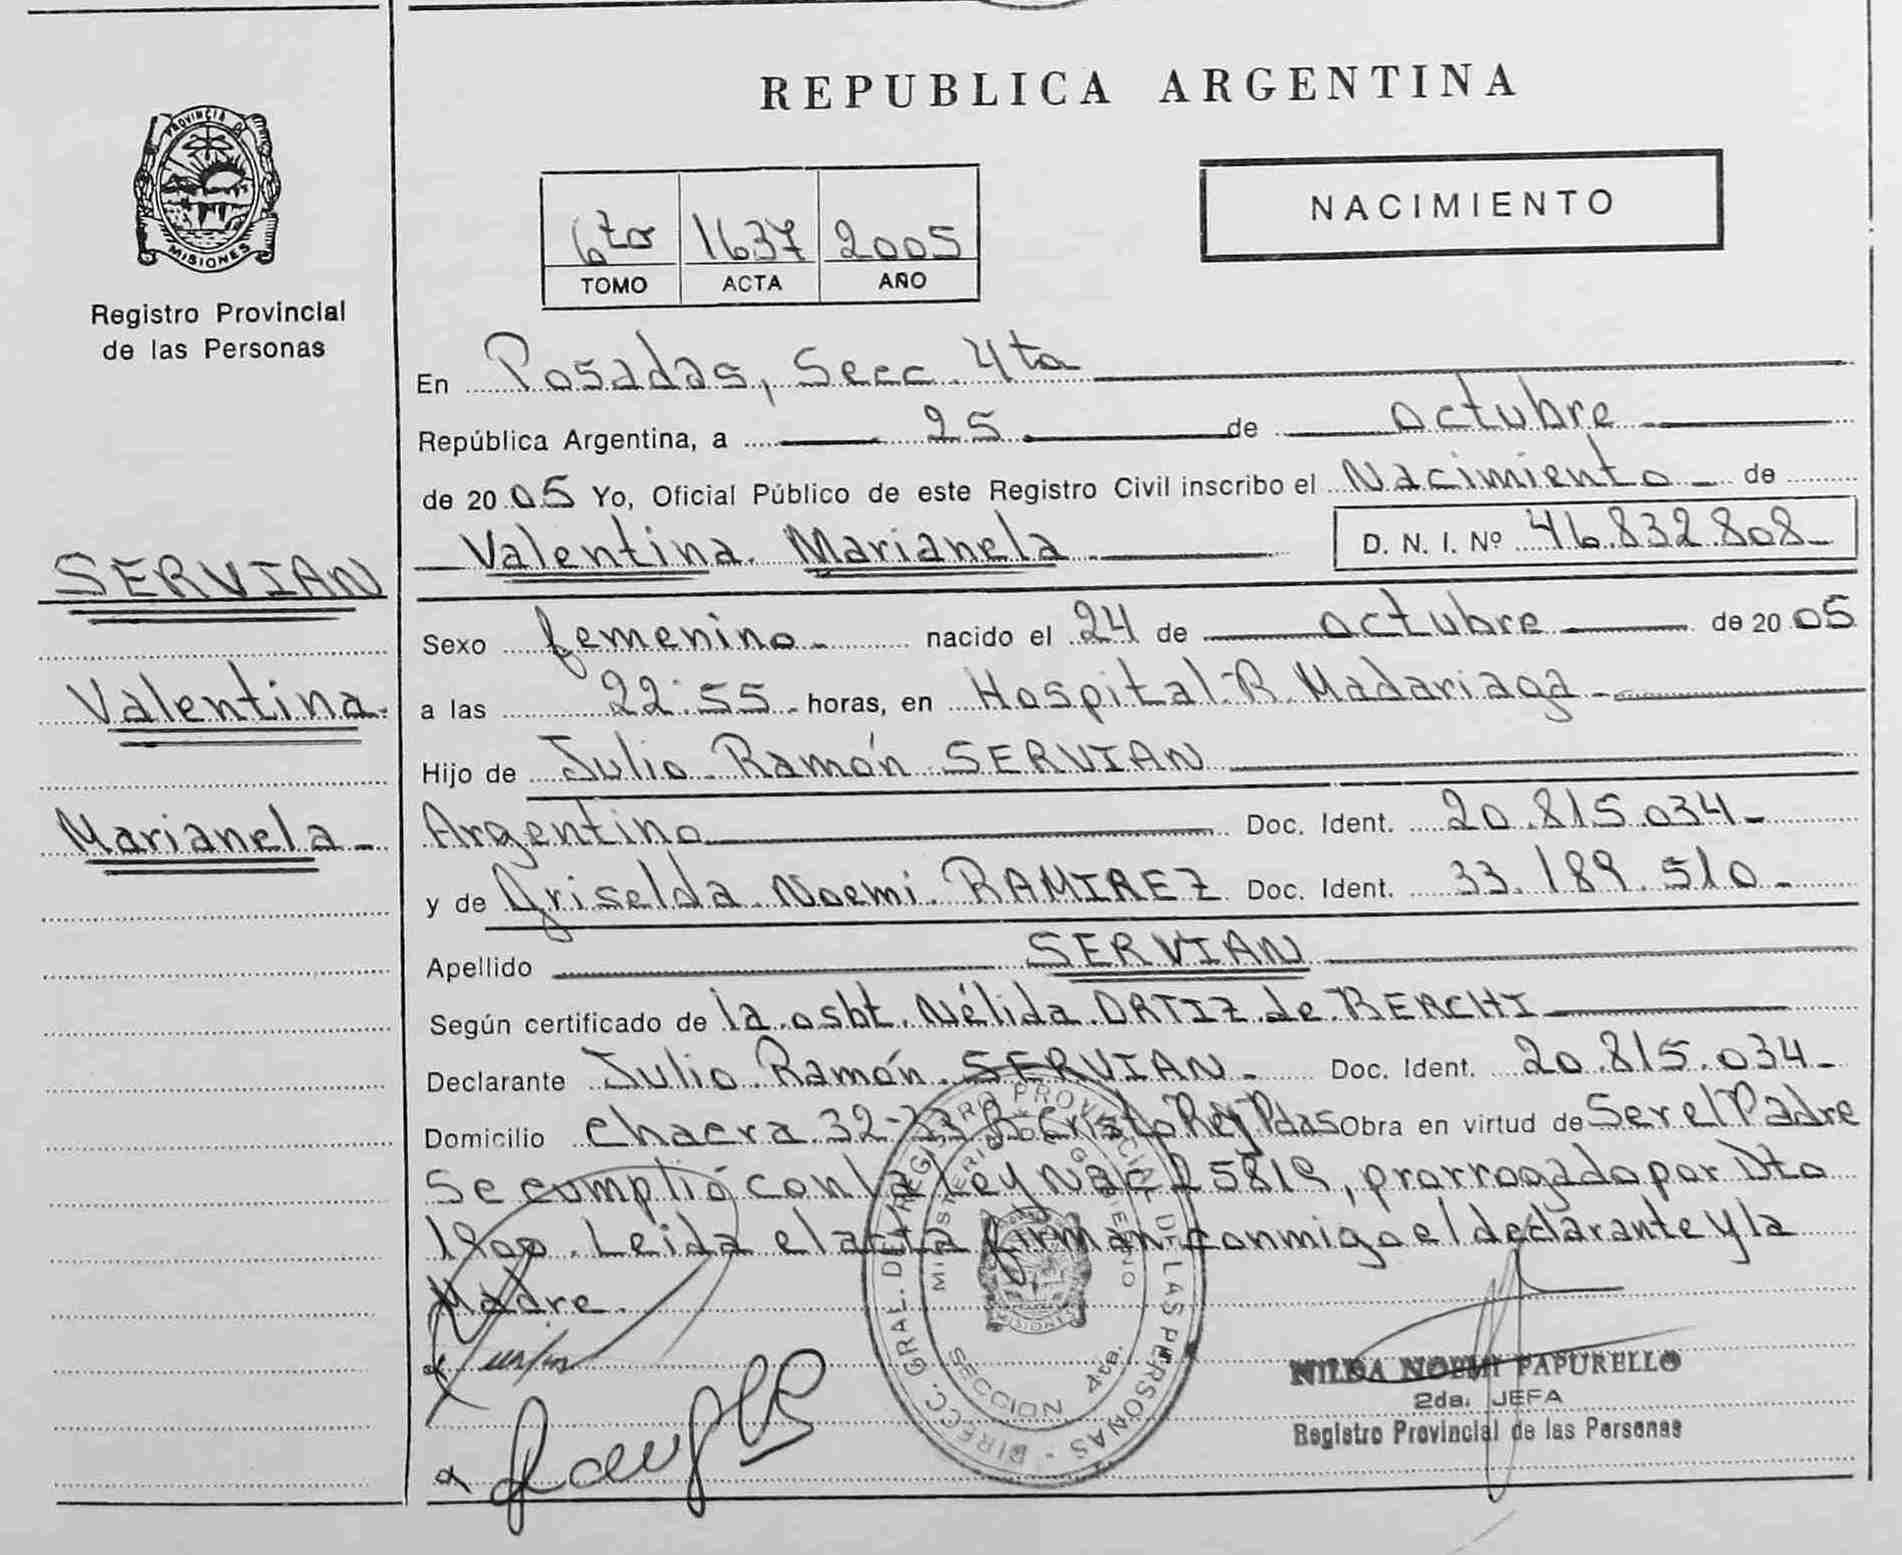 REPUBLICA ARGENTINA
PROVINCIA DE
MISIONES
Registro Provincial
de las Personas
NACIMIENTO
6to 1637 2005
TOMO ACTA AÑO
En Posadas, Secc. 4ta
República Argentina, a 25 de octubre
de 2005 Yo, Oficial Público de este Registro Civil inscribo el Nacimiento de
Valentina Marianela D. N. I. Nº 46.832.808
SERVIAN
Valentina
Marianela
Sexo femenino nacido el 24 de octubre de 2005
a las 22:55 horas, en Hospital R. Madariaga
Hijo de Julio Ramón SERVIAN
Argentino Doc. Ident. 20.815.034
y de Griselda Noemi RAMIREZ Doc. Ident. 33.189.510
Apellido SERVIAN
Según certificado de la osbt. Nélida ORTIZ de BERCHI
Declarante Julio Ramón SERVIAN Doc. Ident. 20.815.034
Domicilio Chacra 32-33 Cristo Rey Pdas Obra en virtud de Ser el Padre
Se cumplió con la Ley Nac 25819, prorrogado por Dto
1900. Leida el acta firman conmigo el declarante y la
Madre.
DIRECC. GRAL. DEL REGISTRO PROVINCIAL DE LAS PERSONAS
MINISTERIO DE GOBIERNO
MISIONES
SECCION 4ta.
NILDA NOEMI PAPURELLO
2da. JEFA
Registro Provincial de las Personas